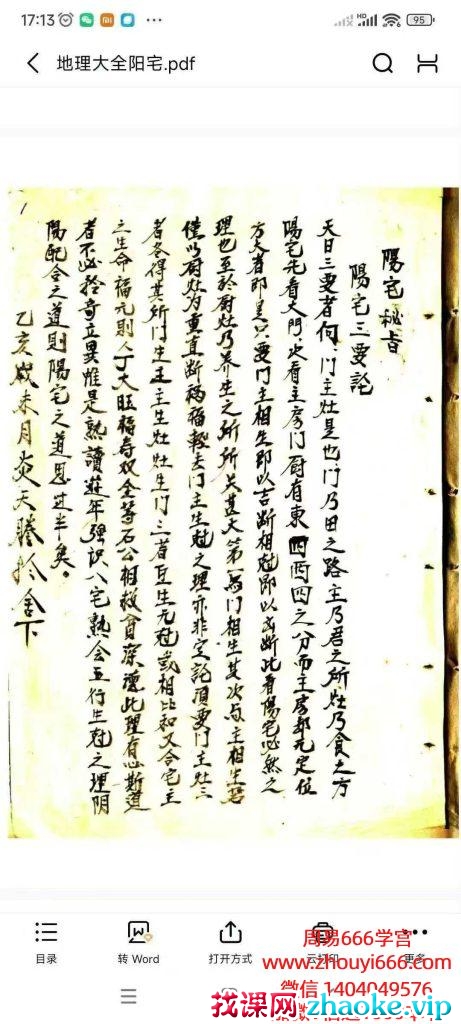 17:13
95
地理大全阳宅.pdf
陽宅秘旨
陽宅三要論
夫曰三要者何門主灶是也門乃田之路主乃君之所灶乃食之方
陽宅先看大門次看主房門厨有東四西四之分而主房却无定位
方大者即是只要門主相生即以吉断相尅即以凶断此看陽宅必然之
理也至於厨灶乃养生之所所关甚大第一为門相生其次与主相生若
僅以厨灶为重直断禍福輕去門主生尅之理亦非定論須要門主灶三
者各得其所門生主主生灶灶生門三者互生无尅或相比和又合宅主
之生命福元則人丁大旺福寿双全等石公相救貧深德此理有心斯道
者不必拾奇立異惟是熟讀遊年强识八宅熟会五行生尅之理阴
陽配合之道則陽宅之道思过半矣。
乙亥歲未月炎天謄於舍下
目录
转 Word
打开方式
云打印
更多
周易666学宫
www.zhouyi666.com
微信 1404049576
找课网zhaoke.vip